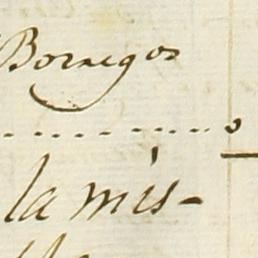 Borregos
la mis-